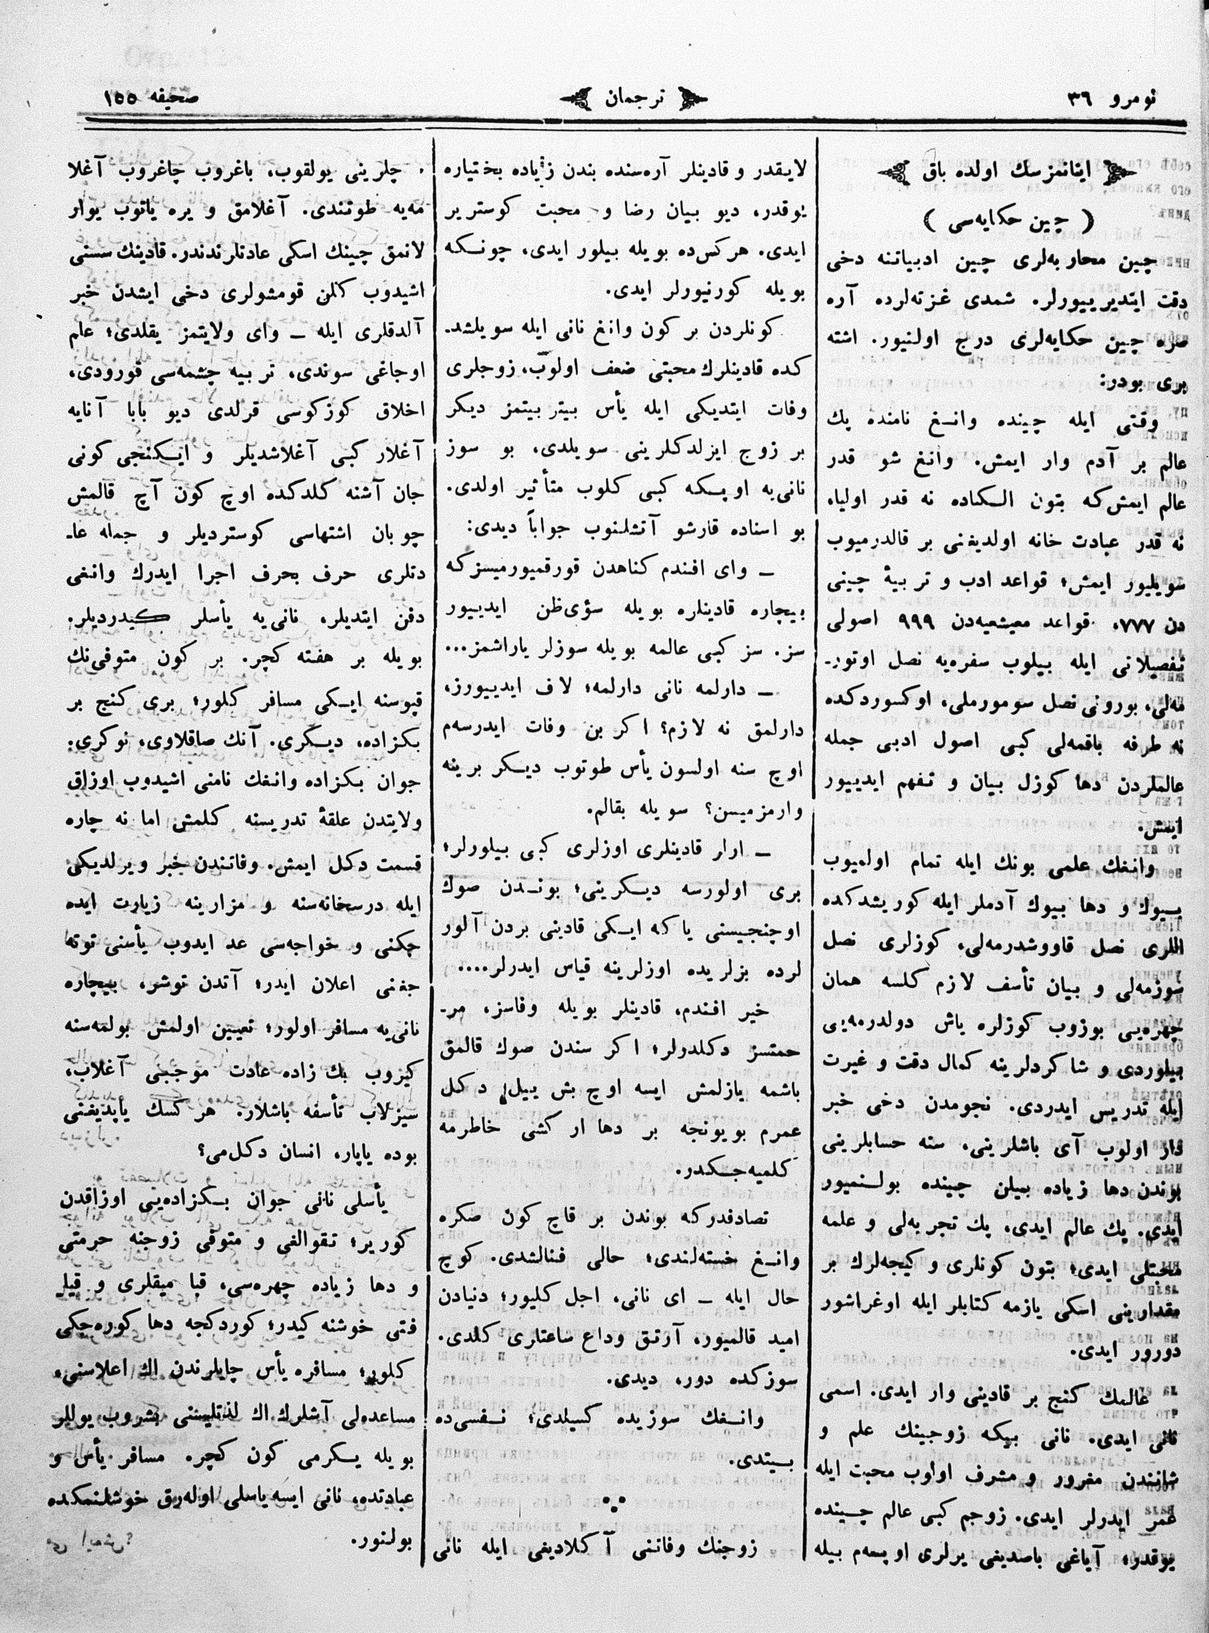 نومرو ٣٦
ترجمان
صحيفه ١٥٥
اينانمزسك اولده باق
( چين حكايه‌سى )
چين محاربه‌لرى چين ادبياتنه دخى
دقت ايتديرييورلر. شمدى غزته‌لرده آره
صره چين حكايه‌لرى درج اولنيور. اشته
برى بودر:
وقتى ايله چينده وانغ نامنده پك
عالم بر آدم وار ايمش. وانغ شو قدر
عالم ايمش‌كه بتون الكاده نه قدر اولياء
نه قدر عبادت خانه اولديغنى بر قالدرميوب
سويليور ايمش؛ قواعد ادب و تربيۀ چينى
دن ٧٧٧، قواعد معيشيه‌دن ٩٩٩ اصولى
تفصيلاتى ايله بيلوب سفره‌يه نصل اوتور-
مه‌لى، بورونى نصل سومورملى، اوكسوردكده
نه طرفه باقمه‌لى كبى اصول ادبى جمله
عالملردن دها كوزل بيان و تفهم ايدييور
ايمش.
وانغك علمى بونك ايله تمام اولميوب
بيوك و دها بيوك آدملر ايله كوريشدكده
اللرى نصل قاووشدرمه‌لى، كوزلرى نصل
سوزمه‌لى و بيان تأسف لازم كلسه همان
چهره‌يى بوزوب كوزلره ياش دولدرمه‌يى
بيلوردى و شاكردلرينه كمال دقت و غيرت
ايله تدريس ايدردى. نجومدن دخى خبر
دار اولوب آى باشلرينى، سنه حسابلرينى
بوندن دها زياده بيلن چينده بولنميور
ايدى. پك عالم ايدى، پك تجربه‌لى و علمه
محبتلى ايدى؛ بتون كونلرى و كيجه‌لرك بر
مقدارينى اسكى يازمه كتابلر ايله اوغراشور
دورور ايدى.
عالمك كنج بر قادينى وار ايدى. اسمى
نانى ايدى. نانى بيكه زوجينك علم و
شانندن مغرور و مشرف اولوب محبت ايله
عمر ايدرلر ايدى. زوجم كبى عالم چينده
يوقدر؛ آياغى باصديغى يرلرى اوپسه‌م بيله
لايقدر و قادينلر آره‌سنده بندن زياده بختياره
يوقدر، ديو بيان رضا و محبت كوسترير
ايدى. هركس‌ده بويله بيلور ايدى، چونكه
بويله كورنيورلر ايدى.
كونلردن بر كون وانغ نانى ايله سويلشد-
كده قادينلرك محبتى ضعف اولوب، زوجلرى
وفات ايتديكى ايله يأس بيتر بيتمز ديكر
بر زوج ايزلدكلرينى سويلدى، بو سوز
نانى‌يه اوپكه كبى كلوب متأثير اولدى.
بو اسناده قارشو آتشلنوب جواباً ديدى:
ـ واى افندم كناهدن قورقميورميسزكه
بيچاره قادينلره بويله سؤى‌ظن ايدييور
سز. سز كبى عالمه بويله سوزلر ياراشمز...
ـ دارلمه نانى دارلمه؛ لاف ايدييورز،
دارلمق نه لازم؟ اكر بن وفات ايدرسه‌م
اوچ سنه اولسون يأس طوتوب ديكر برينه
وارمزميسن؟ سويله بقالم.
ـ ارلر قادينلرى اوزلرى كبى بيلورلر؛
برى اولورسه ديكرينى؛ بوندن صوك
اوچنجيسنى ياكه ايكى قادينى بردن آلور
لرده بزلريده اوزلرينه قياس ايدرلر....
خير افندم، قادينلر بويله وفاسز، مر-
حمتسز دكلدرلر؛ اكر سندن صوك قالمق
باشمه يازلمش ايسه اوچ بش ييل دكل
عمرم بويونجه بر دها ار كشى خاطرمه
كلميه‌جكدر.
تصادفدركه بوندن بر قاچ كون صكره
وانغ خسته‌لندى؛ حالى فنالشدى. كوچ
حال ايله ـ اى نانى، اجل كليور؛ دنيادن
اميد قالميور، آرتق وداع ساعتلرى كلدى.
سوزكده دور، ديدى.
وانغك سوزيده كسيلدى؛ نفسى‌ده
بيتدى.
زوجنك وفاتنى آكلاديغى ايله نانى
چلرينى يولقوب، باغروب چاغروب آغلا
مه‌يه طوتندى. آغلامق و يره ياتوب يوار
لانمق چينك اسكى عادتلرندندر. قادينك سسنى
اشيدوب كلن قومشولرى دخى ايشدن خبر
آلدقلرى ايله ـ واى ولايتمز يقلدى؛ علم
اوجاغى سوندى، تربيه چشمه‌سى قورودى،
اخلاق كوزكوسى قرلدى ديو بابا آنايه
آغلار كبى آغلاشديلر و ايكنجى كونى
جان آشنه كلدكده اوچ كون آچ قالمش
چوبان اشتهاسى كوسترديلر و جمله عا-
دتلرى حرف بحرف اجرا ايدرك وانغى
دفن ايتديلر، نانى‌يه يأسلر كيدرديلر.
بويله بر هفته كچر. بر كون متوفى‌نك
قپوسنه ايكى مسافر كلور؛ برى كنج بر
بكزاده، ديكرى. آنك صاقلاوى، نوكرى.
جوان بكزاده وانغك نامنى اشيدوب اوزاق
ولايتدن علقۀ تدريسنه كلمش اما نه چاره
قسمت دكل ايمش. وفاتندن خبر ويرلديكى
ايله درسخانه‌سنه و مزارينه زيارت ايده
چكنى و خواجه‌سى عد ايدوب يأسنى توته
جغنى اعلان ايدر؛ آتدن توشر، بيچاره
نانى‌يه مسافر اولور؛ تعيين اولمش بولمه‌سنه
كيروب بك زاده عادت موجبى آغلاب،
سيزلاب تأسفه باشلار. هر كسك ياپديغنى
بوده ياپار، انسان دكل‌مى؟
يأسلى نانى جوان بكزاده‌يى اوزاقدن
كورير؛ تقوالغى و متوفى زوجنه حرمتى
و دها زياده چهره‌سى، قپا ميقلرى و قيا
فتى خوشنه كيدر؛ كوردكجه دها كوره‌جكى
كلور؛ مسافره يأس چايلرندن الك اعلاسنى،
مساعده‌لى آشلرك اك لذتليسنى پشروب يوللر
بويله يكرمى كون كچر. مسافر يأس و
عبادتده، نانى ايسه ياسلى اوله‌رق خوشلنمكده
بولنور.